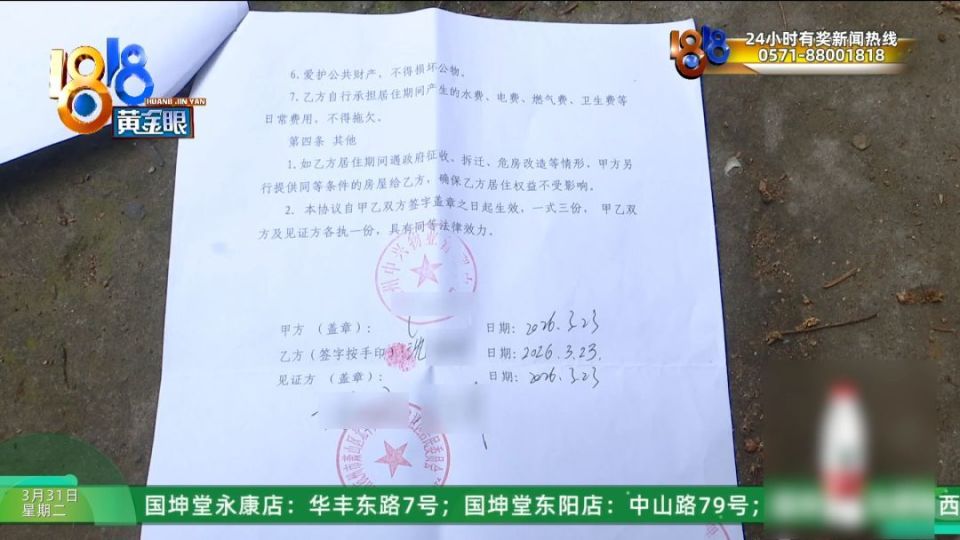 1818
HUANG JIN YAN
黄金眼
1818
24小时有奖新闻热线
0571-88001818
6. 爱护公共财产,不得损坏公物。
7. 乙方自行承担居住期间产生的水费、电费、燃气费、卫生费等
日常费用,不得拖欠。
第四条 其他
1. 如乙方居住期间遇政府征收、拆迁、危房改造等情形,甲方另
行提供同等条件的房屋给乙方,确保乙方居住权益不受影响。
2. 本协议自甲乙双方签字盖章之日起生效,一式三份, 甲乙双
方及见证方各执一份,具有同等法律效力。
州中兴物业
甲方 (盖章): 日期: 2026.3.23
乙方(签字按手印) 沈 日期: 2026.3.23.
见证方 (盖章): 日期: 2026.3.23
民委员会
3月31日
星期二
国坤堂永康店:华丰东路7号;国坤堂东阳店:中山路79号;
西